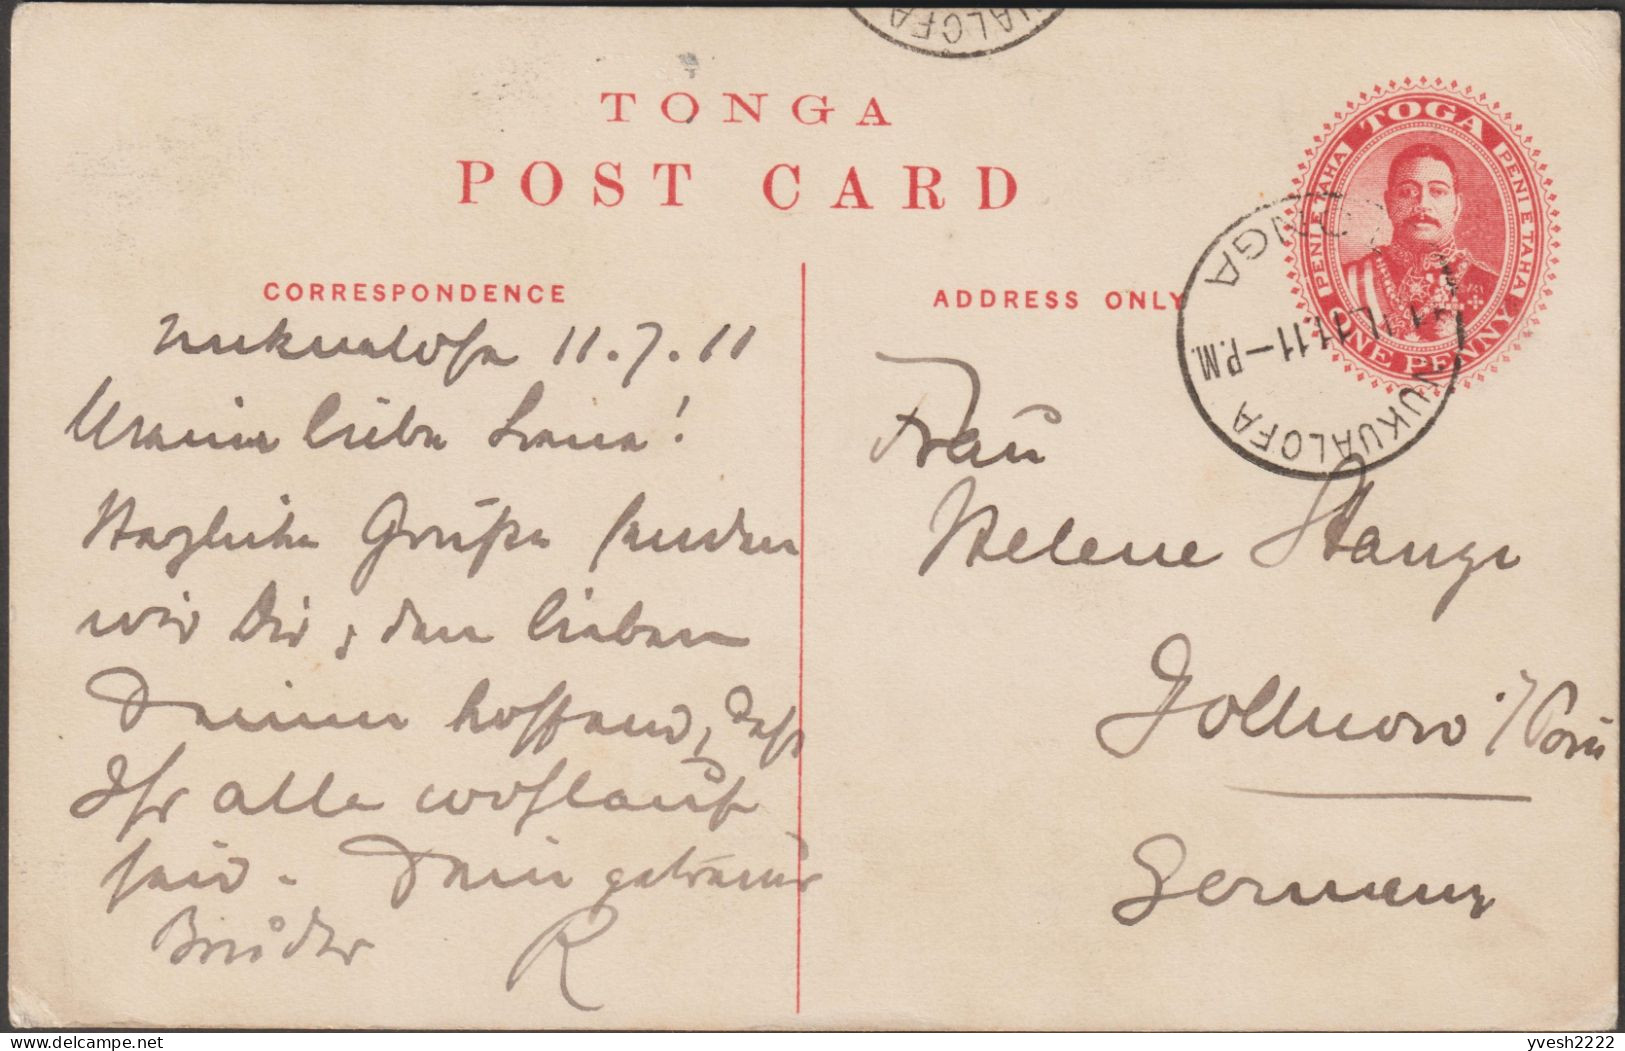 NUKUALOFA
TONGA
POST CARD
TOGA
PENI E TAHA
PENI E TAHA
ONE PENNY
NUKUALOFA
TONGA
11 — P.M.
CORRESPONDENCE
ADDRESS ONLY
Nukualofa 11.7.11
Meine liebe Lene!
Herzliche Grüße senden
wir Dir, den lieben
Deinen hoffend, daß
Ihr alle wohlauf
seid. Dein getreuer
Bruder R
Frau
Helene Stange
Gollnow i/Pom
Germany
yvesh2222